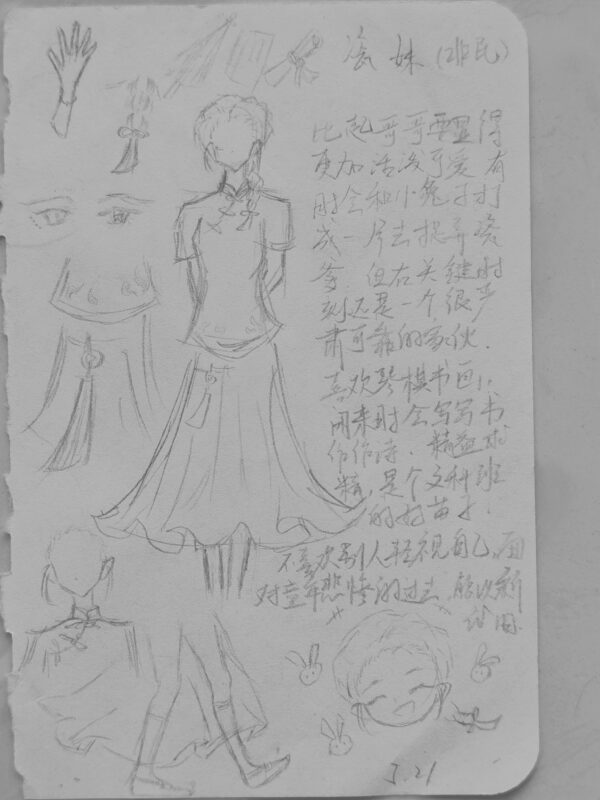 瓷妹(非民)
比起哥哥要显得
更加活泼可爱,有
时会和小兔子打
成一片去捉弄瓷
爹,但在关键时
刻还是一个很严
肃可靠的家伙.
喜欢琴棋书画,
闲来时会写写书
作作诗.精益求
精,是个文科班
的好苗子.
不喜欢别人轻视自己,面
对童年悲惨的过去,能以新
3.21